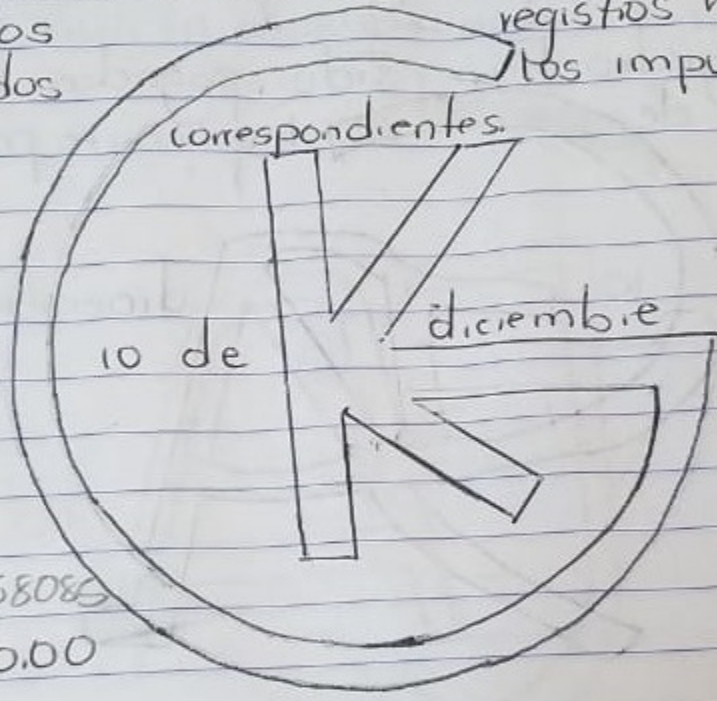 registros
dos los
correspondientes.
10 de diciembre
58085
0.00
GK